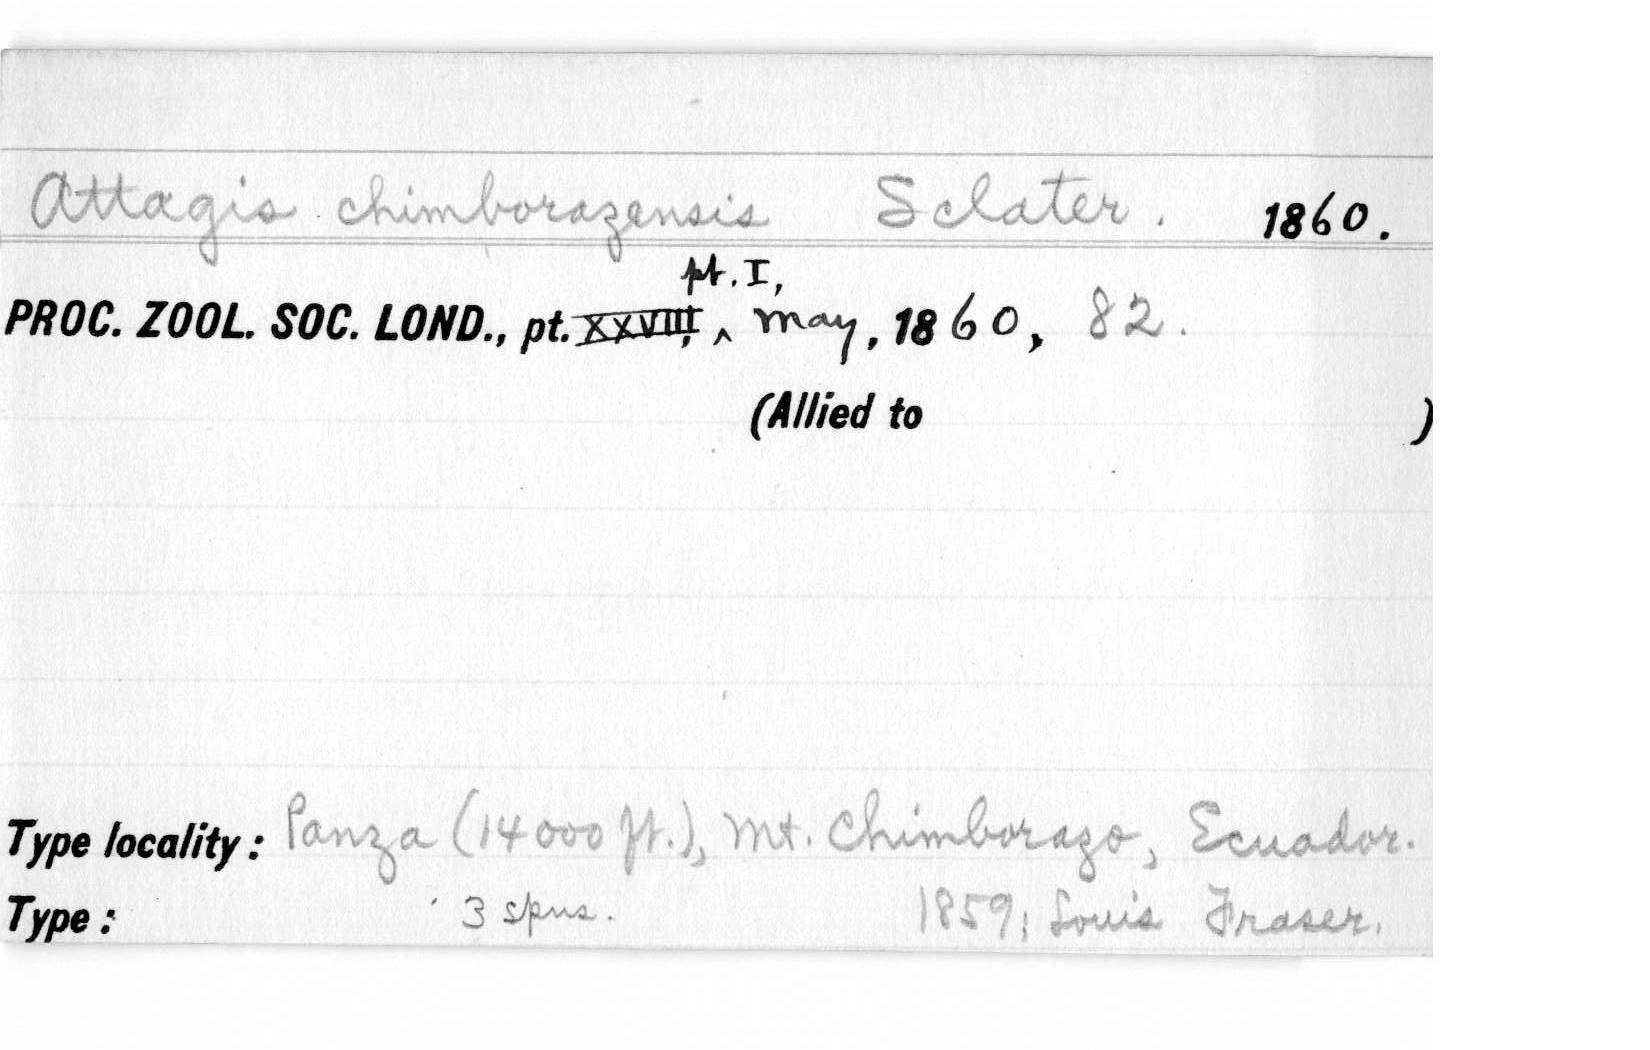 Attagis chimborazensis Sclater. 1860.
pt. I,
PROC. ZOOL. SOC. LOND., pt. XXVIII, ^ May, 1860, 82.
(Allied to )
Type locality: Panza (14000 ft.), Mt. Chimborazo, Ecuador.
Type: 3 spns. 1859; Louis Fraser.